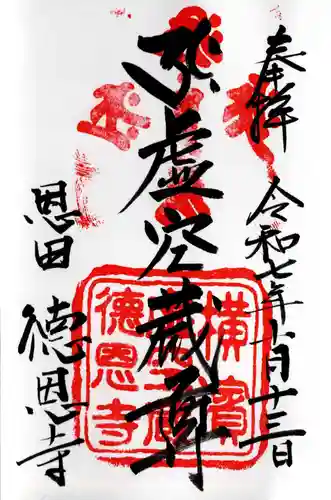 奉拝
令和七年 月十三日
虚空蔵尊
恩田
徳恩寺
横濱
徳恩寺